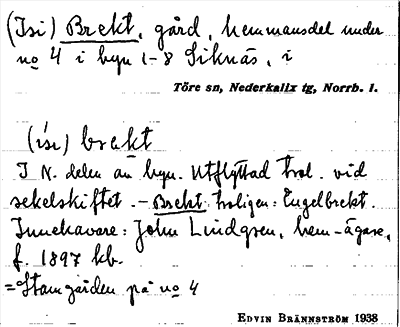 (Isi) Brekt, gård, hemmansdel under
no 4 i byn 1-8 Siknäs, i
Töre sn, Nederkalix tg, Norrb. l.
(ísi) brekt
I N. delen av byn. Utflyttad trol. vid
sekelskiftet. - Brekt troligen: Engelbrekt.
Innehavare: John Lindgren, hem-ägare,
f. 1897 kb.
= Stamgården på no 4
EDVIN BRÄNNSTRÖM 1938